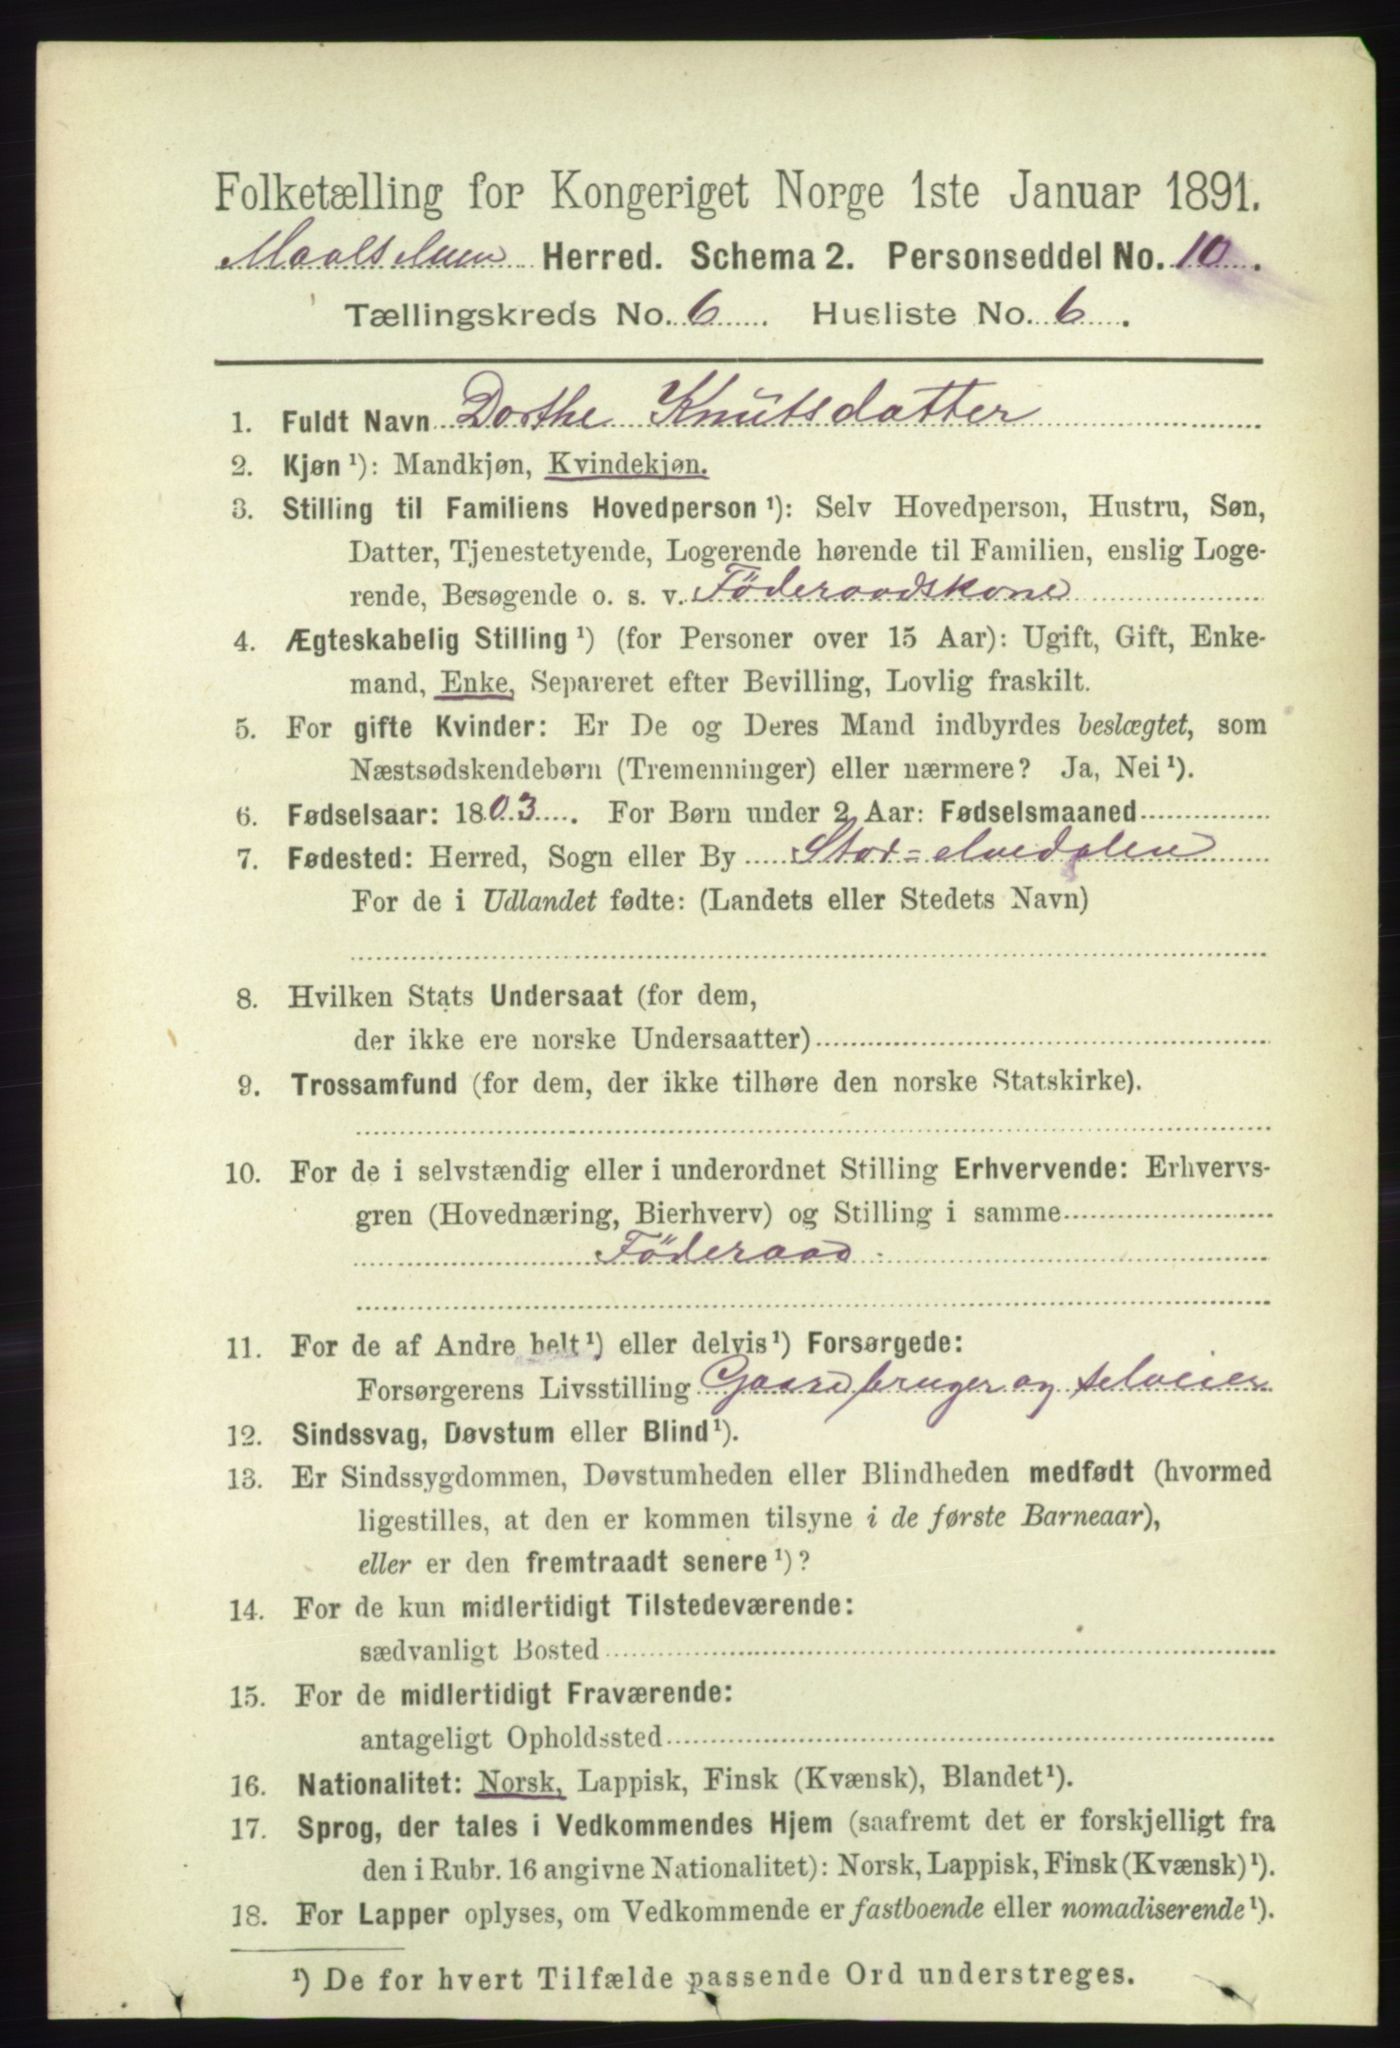 Folketælling for Kongeriget Norge 1ste Januar 1891.
Maalselven Herred. Schema 2. Personseddel No. 10.
Tællingskreds No. 6. Husliste No. 6.
1. Fuldt Navn Dorthe Knütsdatter
2. Kjøn¹): Mandkjøn, Kvindekjøn.
3. Stilling til Familiens Hovedperson¹): Selv Hovedperson, Hustru, Søn,
Datter, Tjenestetyende, Logerende hørende til Familien, enslig Loge-
rende, Besøgende o. s. v. Föderaadskone
4. Ægteskabelig Stilling¹) (for Personer over 15 Aar): Ugift, Gift, Enke-
mand, Enke, Separeret efter Bevilling, Lovlig fraskilt.
5. For gifte Kvinder: Er De og Deres Mand indbyrdes beslægtet, som
Næstsødskendebørn (Tremenninger) eller nærmere? Ja, Nei¹).
6. Fødselsaar: 1803. For Børn under 2 Aar: Fødselsmaaned
7. Fødested: Herred, Sogn eller By Stor=elvedalen
For de i Udlandet fødte: (Landets eller Stedets Navn)
8. Hvilken Stats Undersaat (for dem,
der ikke ere norske Undersaatter)
9. Trossamfund (for dem, der ikke tilhøre den norske Statskirke).
10. For de i selvstændig eller i underordnet Stilling Erhvervende: Erhvervs-
gren (Hovednæring, Bierhverv) og Stilling i samme
Föderaad
11. For de af Andre helt¹) eller delvis¹) Forsørgede:
Forsørgerens Livsstilling Gaardbruger og selveier
12. Sindssvag, Døvstum eller Blind¹).
13. Er Sindssygdommen, Døvstumheden eller Blindheden medfødt (hvormed
ligestilles, at den er kommen tilsyne i de første Barneaar),
eller er den fremtraadt senere¹)?
14. For de kun midlertidigt Tilstedeværende:
sædvanligt Bosted
15. For de midlertidigt Fraværende:
antageligt Opholdssted
16. Nationalitet: Norsk, Lappisk, Finsk (Kvænsk), Blandet¹).
17. Sprog, der tales i Vedkommendes Hjem (saafremt det er forskjelligt fra
den i Rubr. 16 angivne Nationalitet): Norsk, Lappisk, Finsk (Kvænsk)¹).
18. For Lapper oplyses, om Vedkommende er fastboende eller nomadiserende¹).
¹) De for hvert Tilfælde passende Ord understreges.